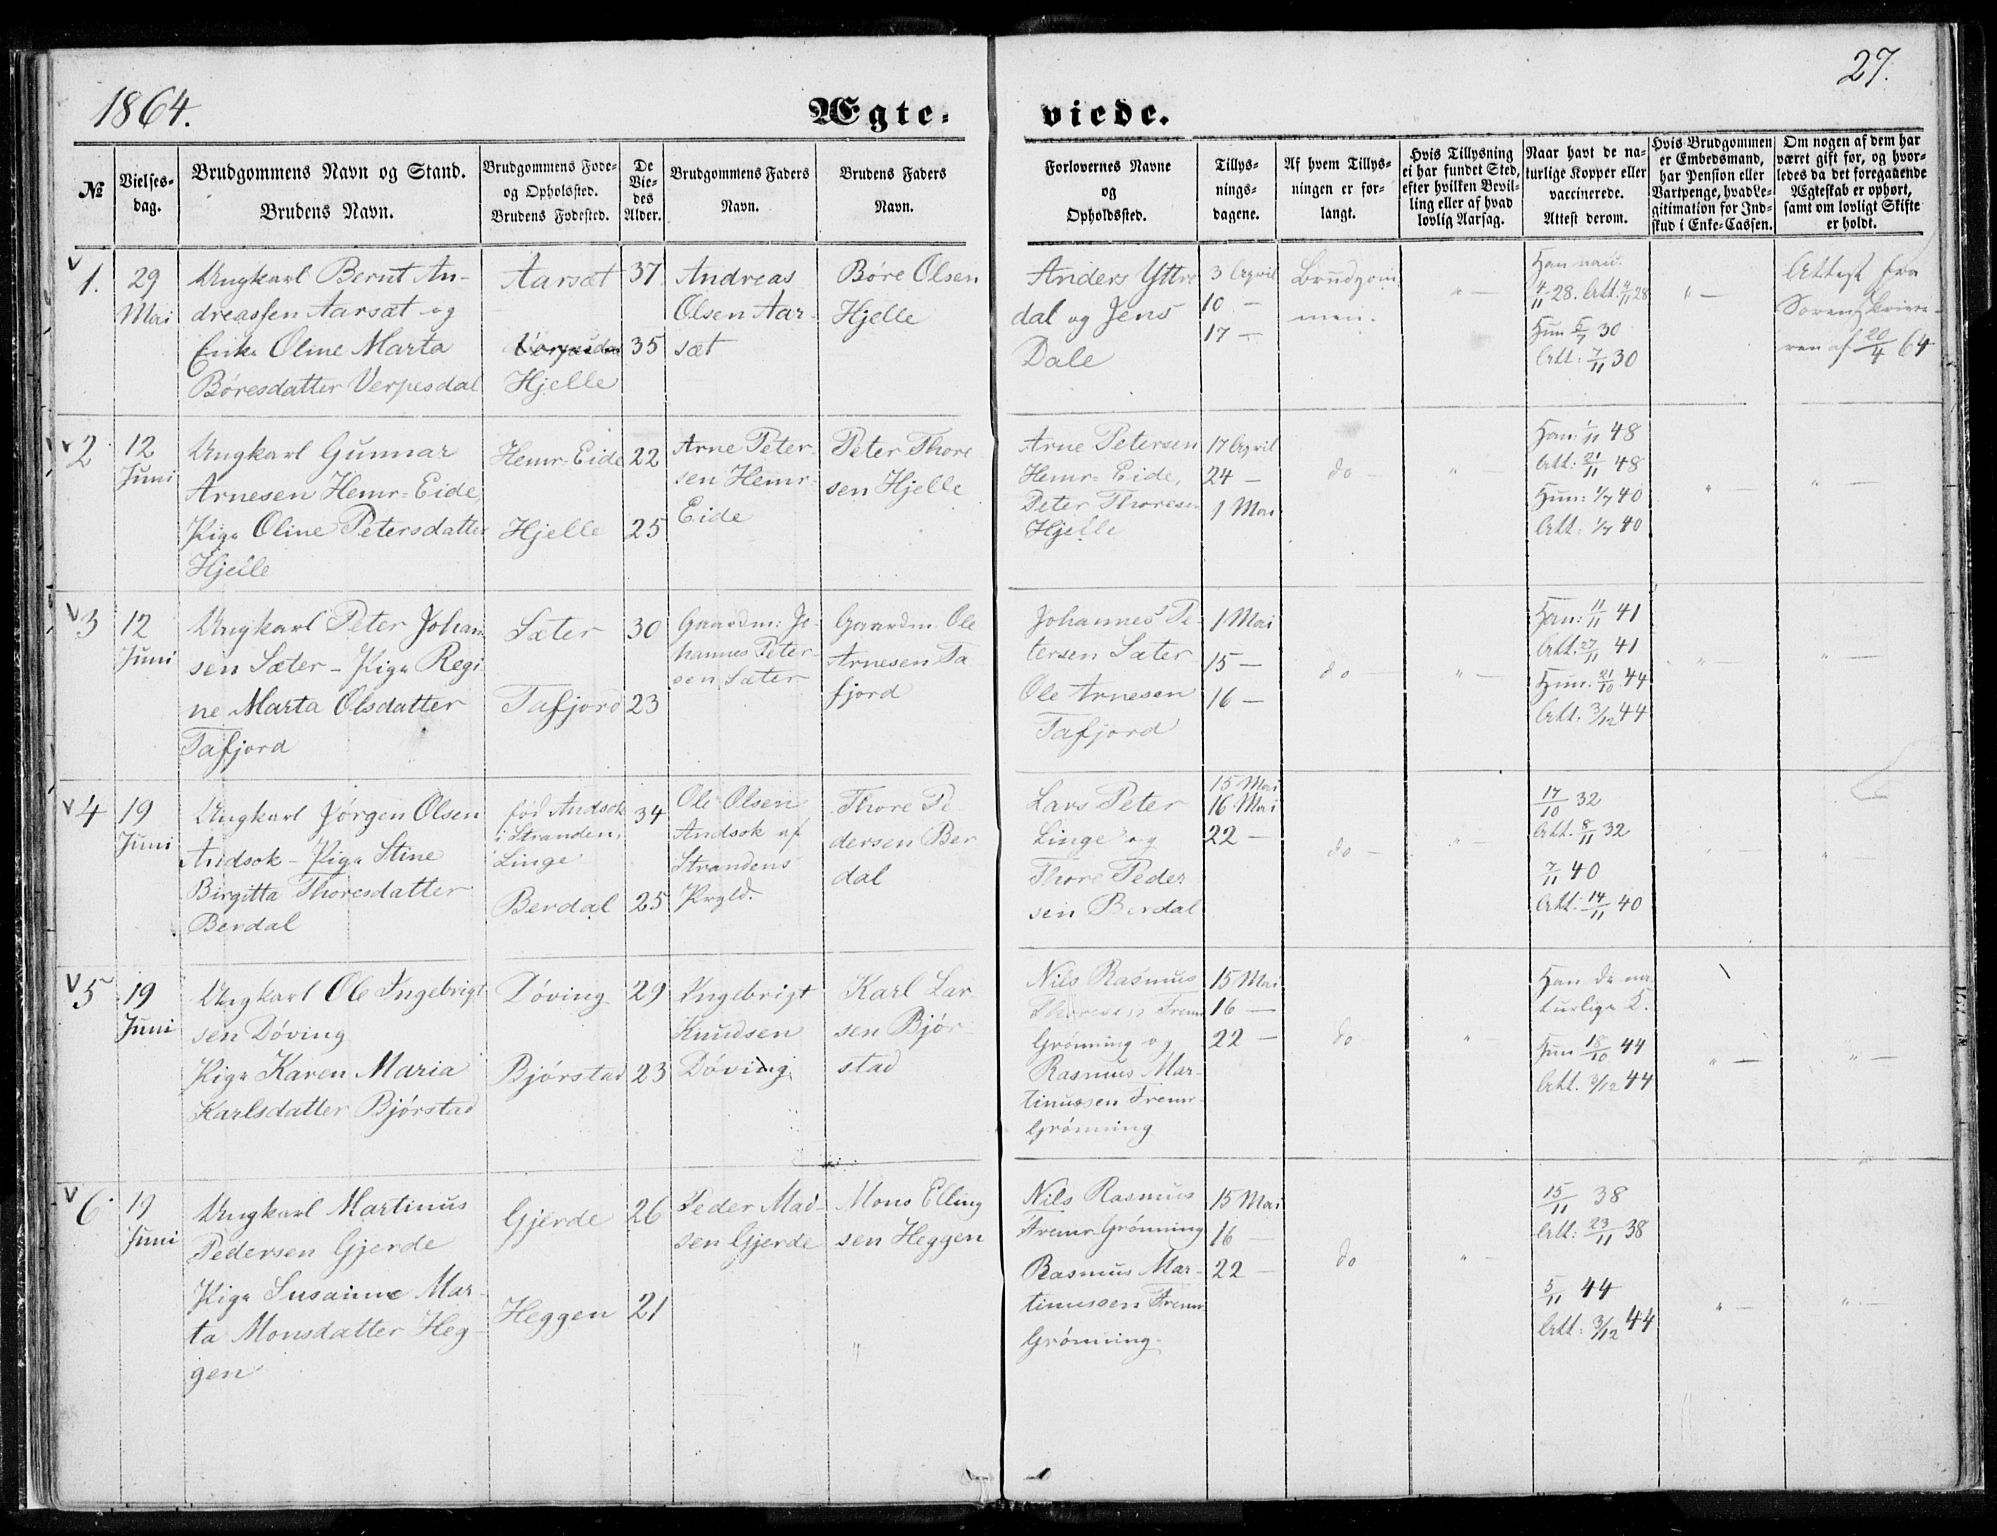 1864.
Ægte-
viede.
27.
№
Vielses-
dag.
Brudgommens Navn og Stand.
Brudens Navn.
Brudgommens Føde-
og Opholdssted.
Brudens Fødested.
De
Vie-
des
Alder.
Brudgommens Faders
Navn.
Brudens Faders
Navn.
Forlovernes Navne
og
Opholdssted.
Tillys-
nings-
dagene.
Af hvem Tillys-
ningen er for-
langt.
Hvis Tillysning
ei har fundet Sted,
efter hvilken Bevil-
ling eller af hvad
lovlig Aarsag.
Naar havt de na-
turlige Kopper eller
vaccinerede.
Attest derom.
Hvis Brudgommen
er Embedsmand,
har Pension eller
Vartpenge, hvad Le-
gitimation for Ind-
skud i Enke-Cassen.
Om nogen af dem har
været gift før, og hvor-
ledes da det foregaaende
Ægteskab er ophørt,
samt om lovligt Skifte
er holdt.
1.
29
Mai
Ungkarl Bernt An-
dreassen Aarsæt og
Enke Oline Marta
Børesdatter Verpesdal
Aarsæt
Hjelle
37
35
Andreas
Olsen Aar-
sæt
Børe Olsen
Hjelle
Anders Yttre
dal og Jens
Dale
3 April
10 —
17 —
Brudgom
men.
" —
Han vac.
4/11 28. Att. 4/11 28
Hun 5/7 30
Att: 7/11 30
" —
Attest fra
Sorenskrive-
ren af 20/4 64
2
12
Juni
Ungkarl Gunnar
Arnesen Hemr=Eide,
Pige Oline Petersdatter
Hjelle
Hemr=Eide
Hjelle
22
25
Arne Peter
sen Hemr-
Eide
Peter Thore
sen Hjelle
Arne Petersen
Hemr=Eide,
Peter Thoresen
Hjelle
17 April
24 —
1 Mai
do —
" —
Han: 1/11 48
Att: 21/11 48
Hun: 1/7 40
Att: 1/7 40
" —
" —
3
12
Juni
Ungkarl Peter Johan
sen Sæter - Pige Regi
ne Marta Olsdatter
Tafjord
Sæter
Tafjord
30
23
Gaardm: Jo-
hannes Peter-
sen Sæter
Gaardm. Ole
Arnesen Ta
fjord
Johannes Pe-
tersen Sæter
Ole Arnesen
Tafjord
1 Mai
15 —
16 —
do —
" —
Han: 11/11 41
Att. 27/11 41
Hun. 21/10 44
Att. 3/12 44
" —
" —
4
19
Juni
Ungkarl Jørgen Olsen
Andsok - Pige Stine
Birgitta Thoresdatter
Berdal
fød Andsok
i Stranden,
Linge
Berdal
34
25
Ole Olsen
Andsok af
Strandens
Prgld.
Thore Pe
dersen Ber
dal
Lars Peter
Linge og
Thore Peder
sen Berdal
15 Mai
16 Mai
22 —
do —
" —
17/10 32
Att. 8/11 32
7/11 40
Att: 14/11 40
" —
" —
5
19
Juni
Ungkarl Ole Ingebrigt
sen Døving
Pige Karen Maria
Karlsdatter Bjørstad
Døving
Bjørstad
29
23
Ingebrigt
Knudsen
Døving
Karl Lar
sen Bjør-
stad
Nils Rasmus
Thoresen Fremr
Grønning og
Rasmus Mar-
tinussen Fremr-
Grønning
15 Mai
16 —
22 —
do
" —
Han de na
turlige K.
Hun 18/10 44
Att. 3/12 44
" —
" —
6
19
Juni
Ungkarl Martinus
Pedersen Gjerde
Pige Susanne Mar-
ta Monsdatter Heg-
gen
Gjerde
Heggen
26
21
Peder Mad-
sen Gjerde
Mons Elling
sen Heggen
Nils Rasmus
Fremr Grønning
Rasmus Mar-
tinussen Fremr
Grønning.
15 Mai
16 —
22 —
do
" —
15/11 38
Att: 23/11 38
5/11 44
Att: 3/12 44
" —
" —